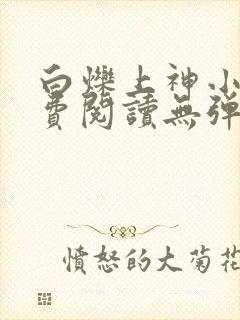 白爍上神小
費閱讀無彈
憤怒的大菊花